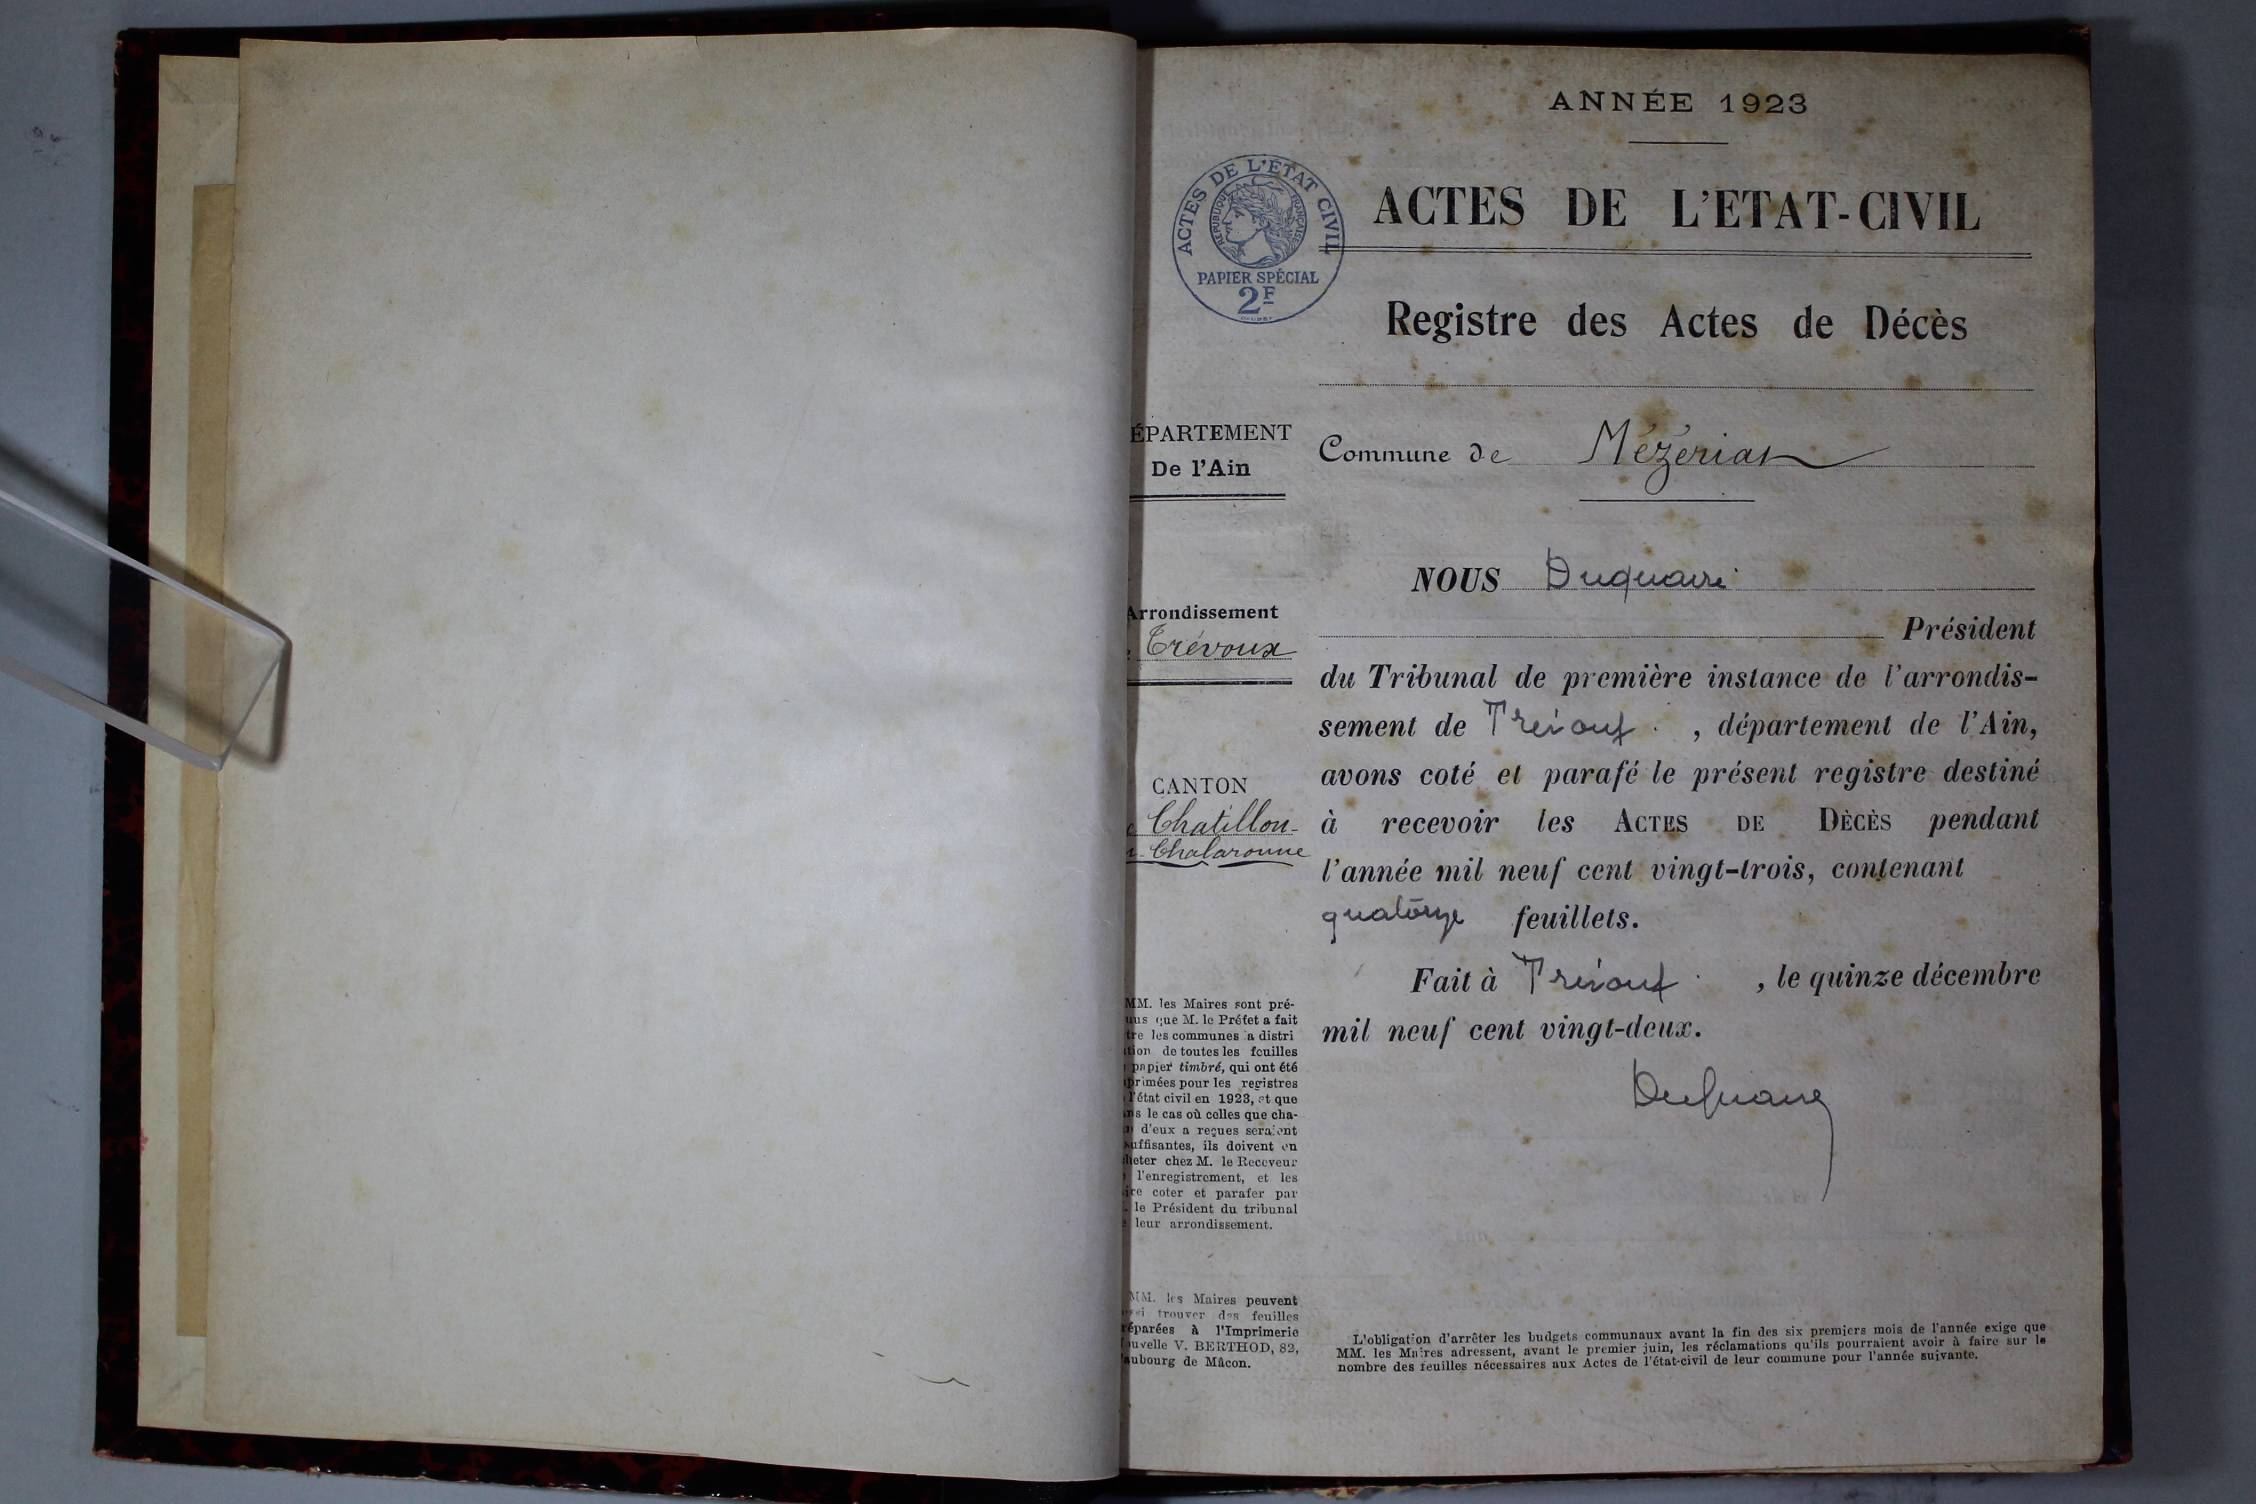 ANNÉE 1923
ACTES DE L'ÉTAT CIVIL
RÉPUBLIQUE FRANÇAISE
PAPIER SPÉCIAL
2F
ACTES DE L'ETAT-CIVIL
Registre des Actes de Décès
ÉPARTEMENT
De l'Ain
Commune de Mézériat
NOUS Duquaire
Arrondissement
Trévoux
Président
du Tribunal de première instance de l'arrondis-
sement de Trévoux, département de l'Ain,
avons coté et parafé le présent registre destiné
à recevoir les ACTES DE DÈCÈS pendant
l'année mil neuf cent vingt-trois, contenant
quatorze feuillets.
CANTON
Chatillon-
Chalaronne
Fait à Trévoux, le quinze décembre
mil neuf cent vingt-deux.
Duquaire
MM. les Maires sont pré-
nus que M. le Préfet a fait
tre les communes a distri
tion de toutes les feuilles
papier timbré, qui ont été
primées pour les registres
l'état civil en 1923, et que
ns le cas où celles que cha-
d'eux a reçues seraient
uffisantes, ils doivent en
heter chez M. le Receveur
l'enregistrement, et les
ire coter et parafer par
. le Président du tribunal
leur arrondissement.
MM. les Maires peuvent
ssi trouver des feuilles
réparées à l'Imprimerie
ouvelle V. BERTHOD, 82,
aubourg de Mâcon.
L'obligation d'arrêter les budgets communaux avant la fin des six premiers mois de l'année exige que
MM. les Maires adressent, avant le premier juin, les réclamations qu'ils pourraient avoir à faire sur le
nombre des feuilles nécessaires aux Actes de l'état-civil de leur commune pour l'année suivante.